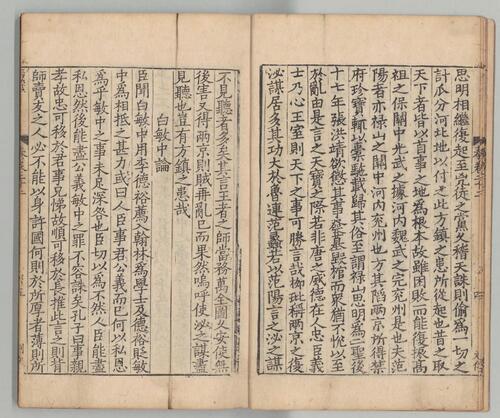 思明相繼復起至完從之黨久稽天誅則偷為一切之
計瓜分河北地以付之此方鎮之患所從起也昔之取
天下者皆以首事之地為根本故雖困敗而能復振高
祖之保關中光武之據河內魏武之完兗州是也夫范
陽者亦祿山之關中河內兗州也方其陷兩京所得禁
府珎寶輒以橐駞載歸其俗至謂祿山思明為二聖後
十七年張洪靖欲懲其事發墓毀棺而衆猶不悅以至
於亂由是言之天寶之際若非唐之威德在人忠臣義
士乃心王室則天下之事可勝言哉柳玭稱兩京之復
泌謀居多其功大於魯連范蠡若以范陽言之泌之謀
不見聽者多矣其言王者之師當務萬全圖久安使無
後害又得兩京則賊再亂已而果然嗚呼使泌之謀盡
見聽也豈有方鎮之患哉
白敏中論
臣聞白敏中用李德裕薦入翰林為學士及德裕貶敏
中為相抵之甚力或曰人臣事君公義而已何以私恩
為乎敏中之事未足深咎也臣切以為不然人臣能盡
私恩然後能盡公義敏中之罪不容誅矣孔子曰事親
孝故忠可移於君事兄悌故順可移於長推此言之則背
師賣友之人必不能以身許國何則於所厚者薄則所